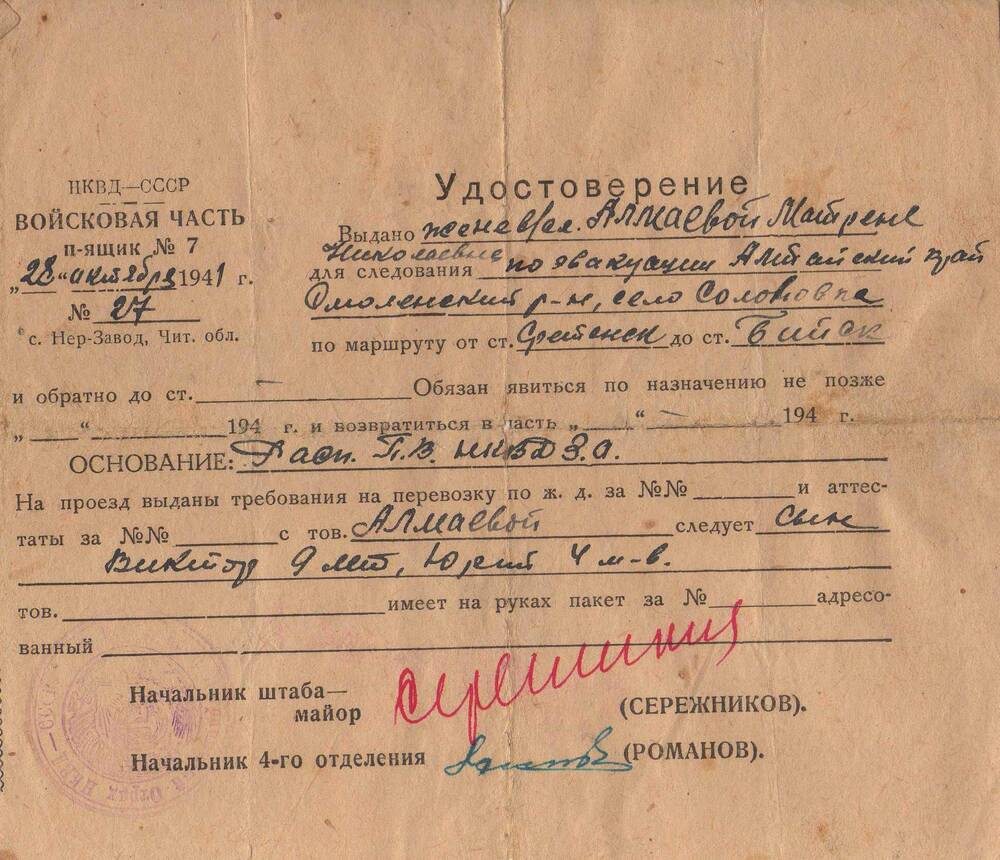 НКВД—СССР
ВОЙСКОВАЯ ЧАСТЬ
п-ящик № 7
„28“ октября 1941 г.
№ 27
с. Нер-Завод, Чит. обл.
Удостоверение
Выдано жене в/сл. Алмаевой Матрене
Николаевне
для следования по эвакуации Алтайский край
Смоленский р-н, село Солоновка
по маршруту от ст. Сретенск до ст. Бийск
и обратно до ст. — Обязан явиться по назначению не позже
„ “ 194 г. и возвратиться в часть „ “ — 194 г.
ОСНОВАНИЕ: Расп. П.В. НКВД З.О.
На проезд выданы требования на перевозку по ж. д. за №№ и аттес-
таты за №№ с тов. Алмаевой следует сын
Виктор 9 лет, Юрий 4 м-в.
тов. имеет на руках пакет за № адресо-
ванный
Начальник штаба—
майор (СЕРЕЖНИКОВ).
Начальник 4-го отделения (РОМАНОВ).